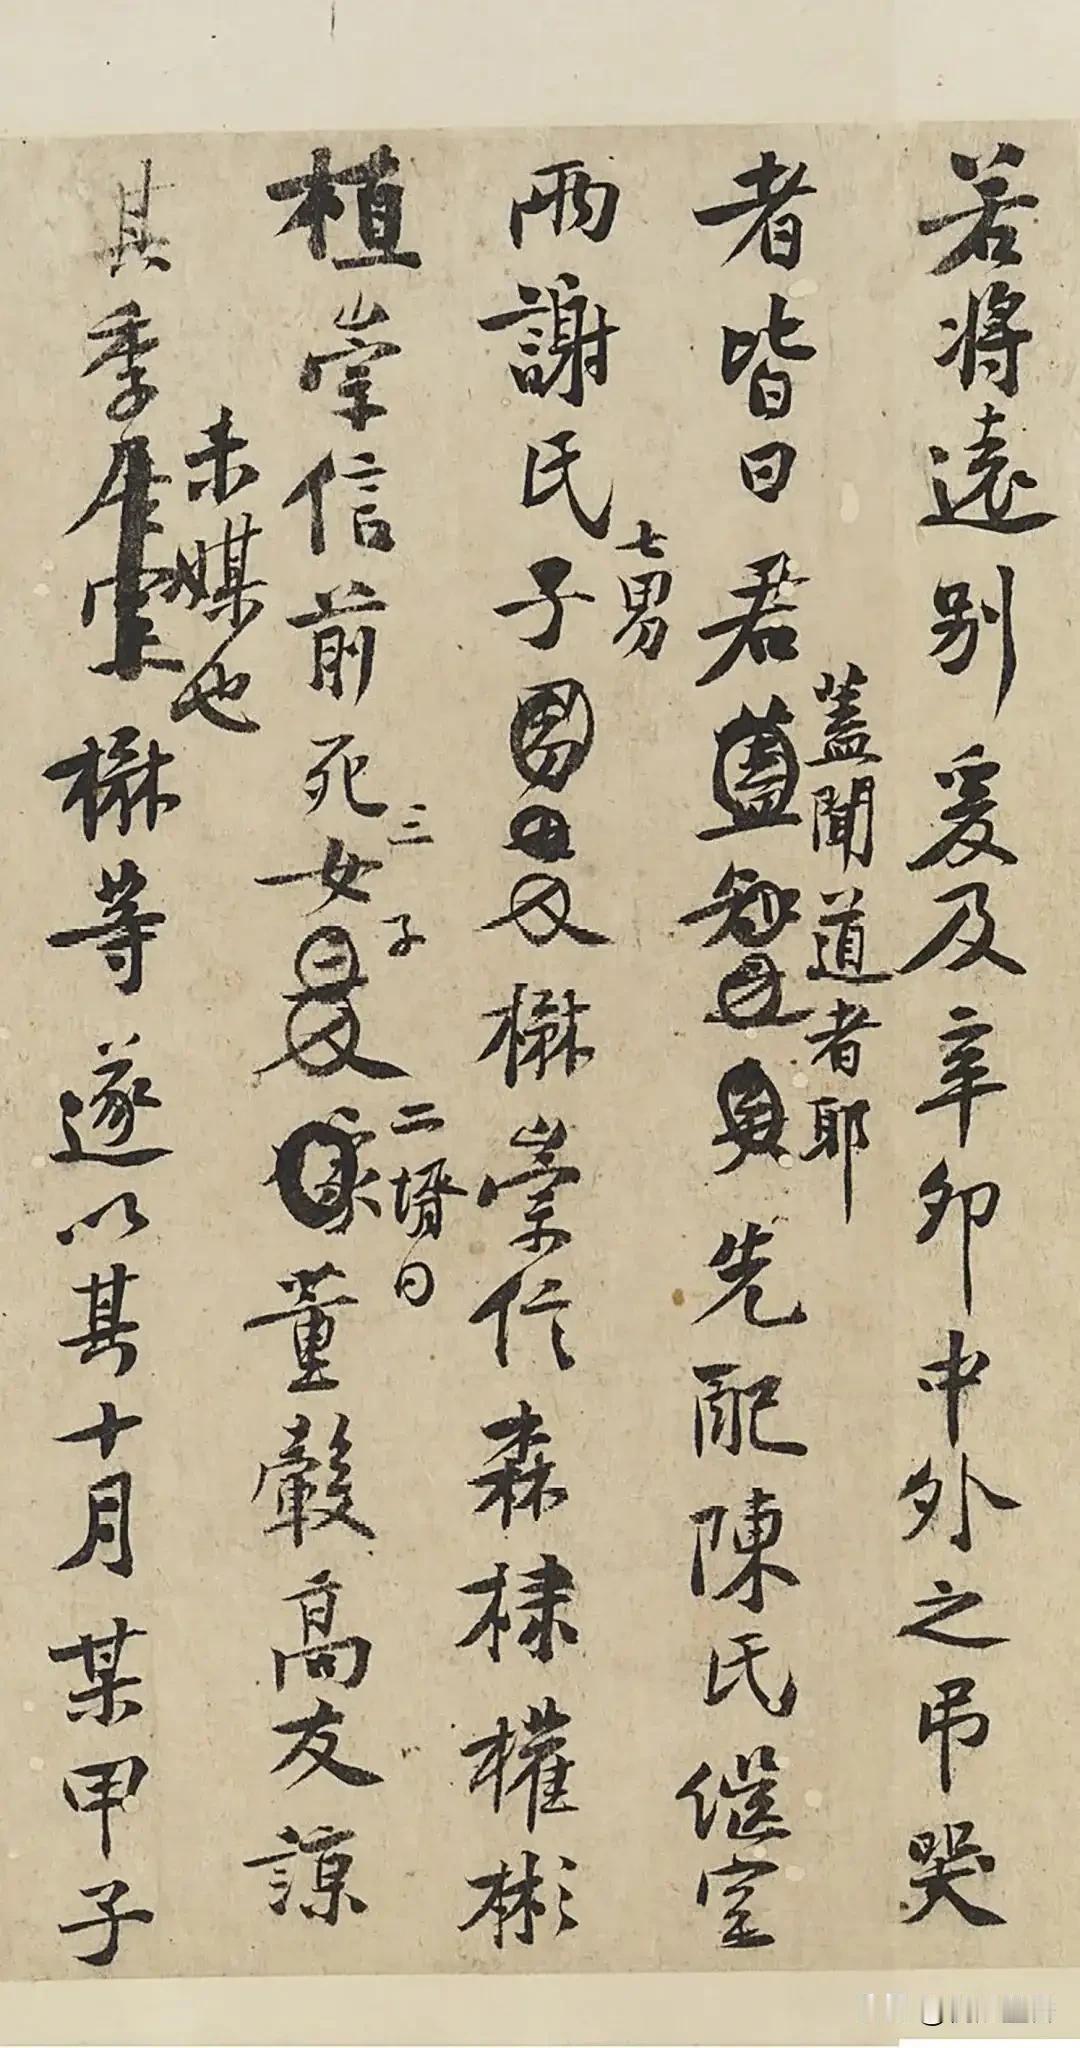 若將遠別爰及辛卯中外之弔哭
者皆曰君蓋知
蓋聞道者耶
先配陳氏繼室
兩謝氏子男
七男
楙崇信森棣權彬
植崇信前死女
三子
二壻曰
董轂高友諒
其季
未媒也
楙等遂以其十月某甲子